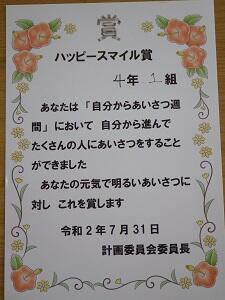 賞
ハッピースマイル賞
4年 1組
あなたは「自分からあいさつ週
間」において 自分から進んで
たくさんの人にあいさつをすること
ができました
あなたの元気で明るいあいさつに
対し これを賞します
令和2年7月31日
計画委員会委員長